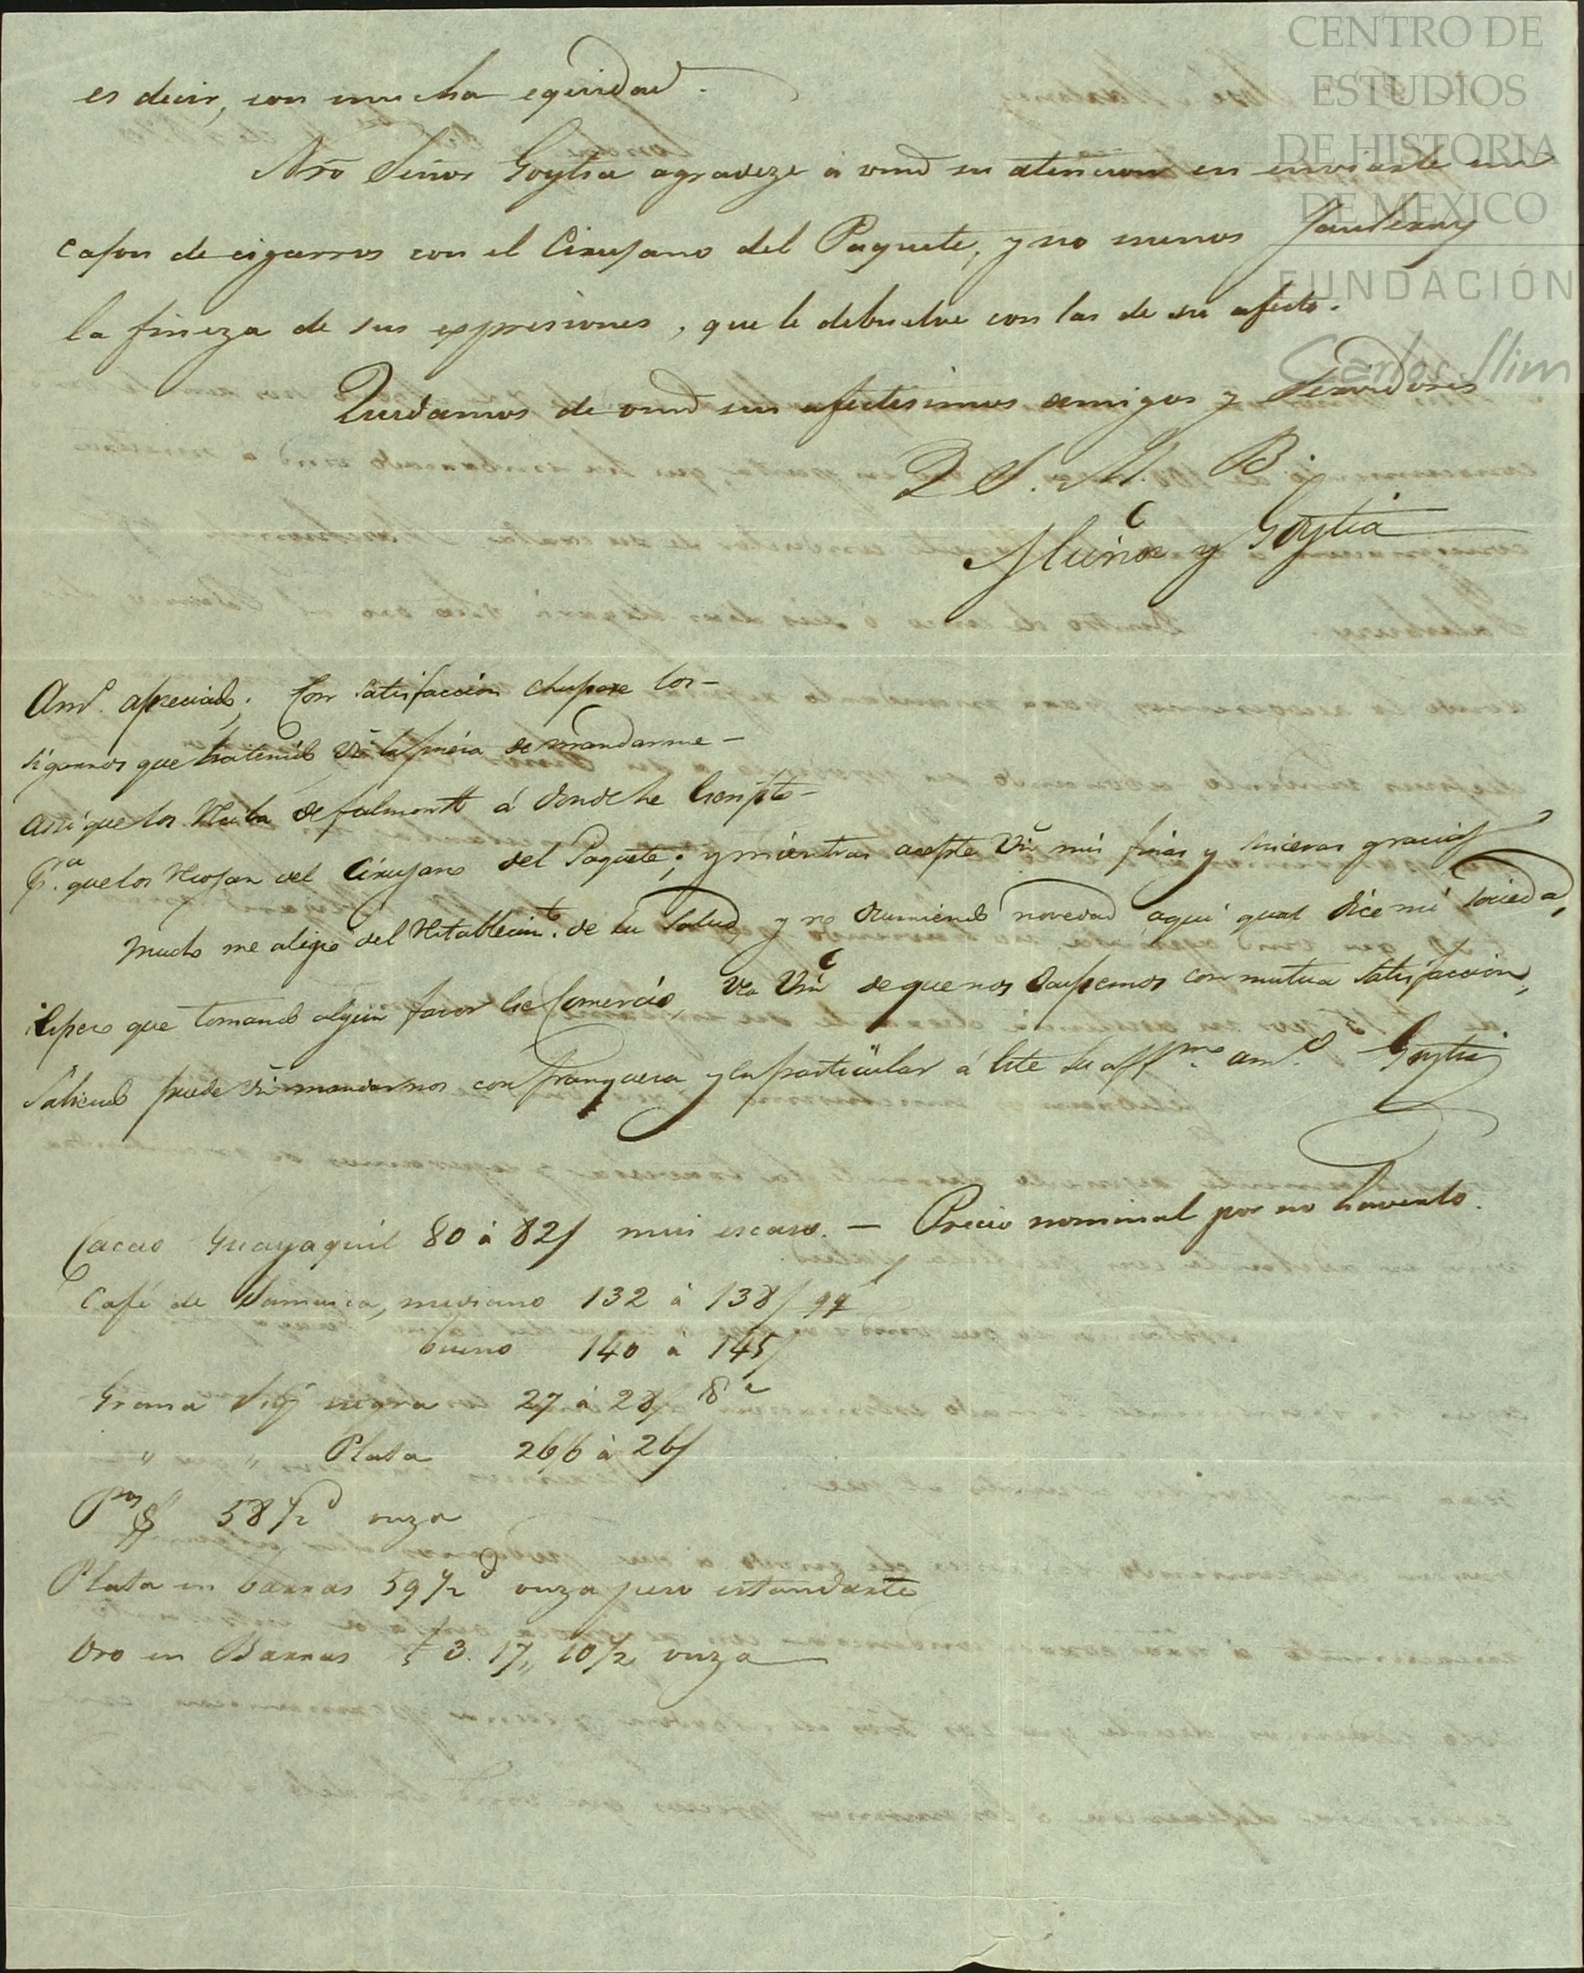 CENTRO DE
ESTUDIOS
DE HISTORIA
DE MEXICO
FUNDACIÓN
Carlos Slim
es decir, con mucha equidad.
Nro Señor Goytia agradeze á vmd su atencion en enviarle un
cajon de cigarros con el Cirujano del Paquete, y no menos
la fineza de sus expresiones, que le debuelve con las de su afecto.
Quedamos de vmd sus afectisimos amigos y Servidores
Q S. M. B.
Muñoz y Goytia
Amo. apreciado; Con satisfaccion chupare los
sigarros que ha tenido Vm la fineza de mandarme
assi que los reciba de falmouth á donde he escripto
pa. que los recojan del Cirujano del Paquete; y mientras acepte Vm mis finas y sinceras gracias
Mucho me alegro del restablecimto. de su salud, y no ocurriendo novedad aqui qual dice mi sociedad,
espero que tomando algun favor el Comercio, vea Vm de que nos ocupemos con mutua satisfaccion,
puede Vm mandarnos con franqueza y en particular á este su affmo. amo. Goytia
Cacao Guayaquil 80 á 82/ mui escaso. — Precio nominal por no haverlo.
Café de Jamaica, mediano 132 á 138/ qql
bueno 140 á 145/
Grana negra 27 á 28/
" " Plata 26/6 á 26/
Pos $ 58 1/2 d onza
Plata en barras 59 1/2 d onza peso estandarte
Oro en Barras £ 3. 17,, 10 1/2 onza